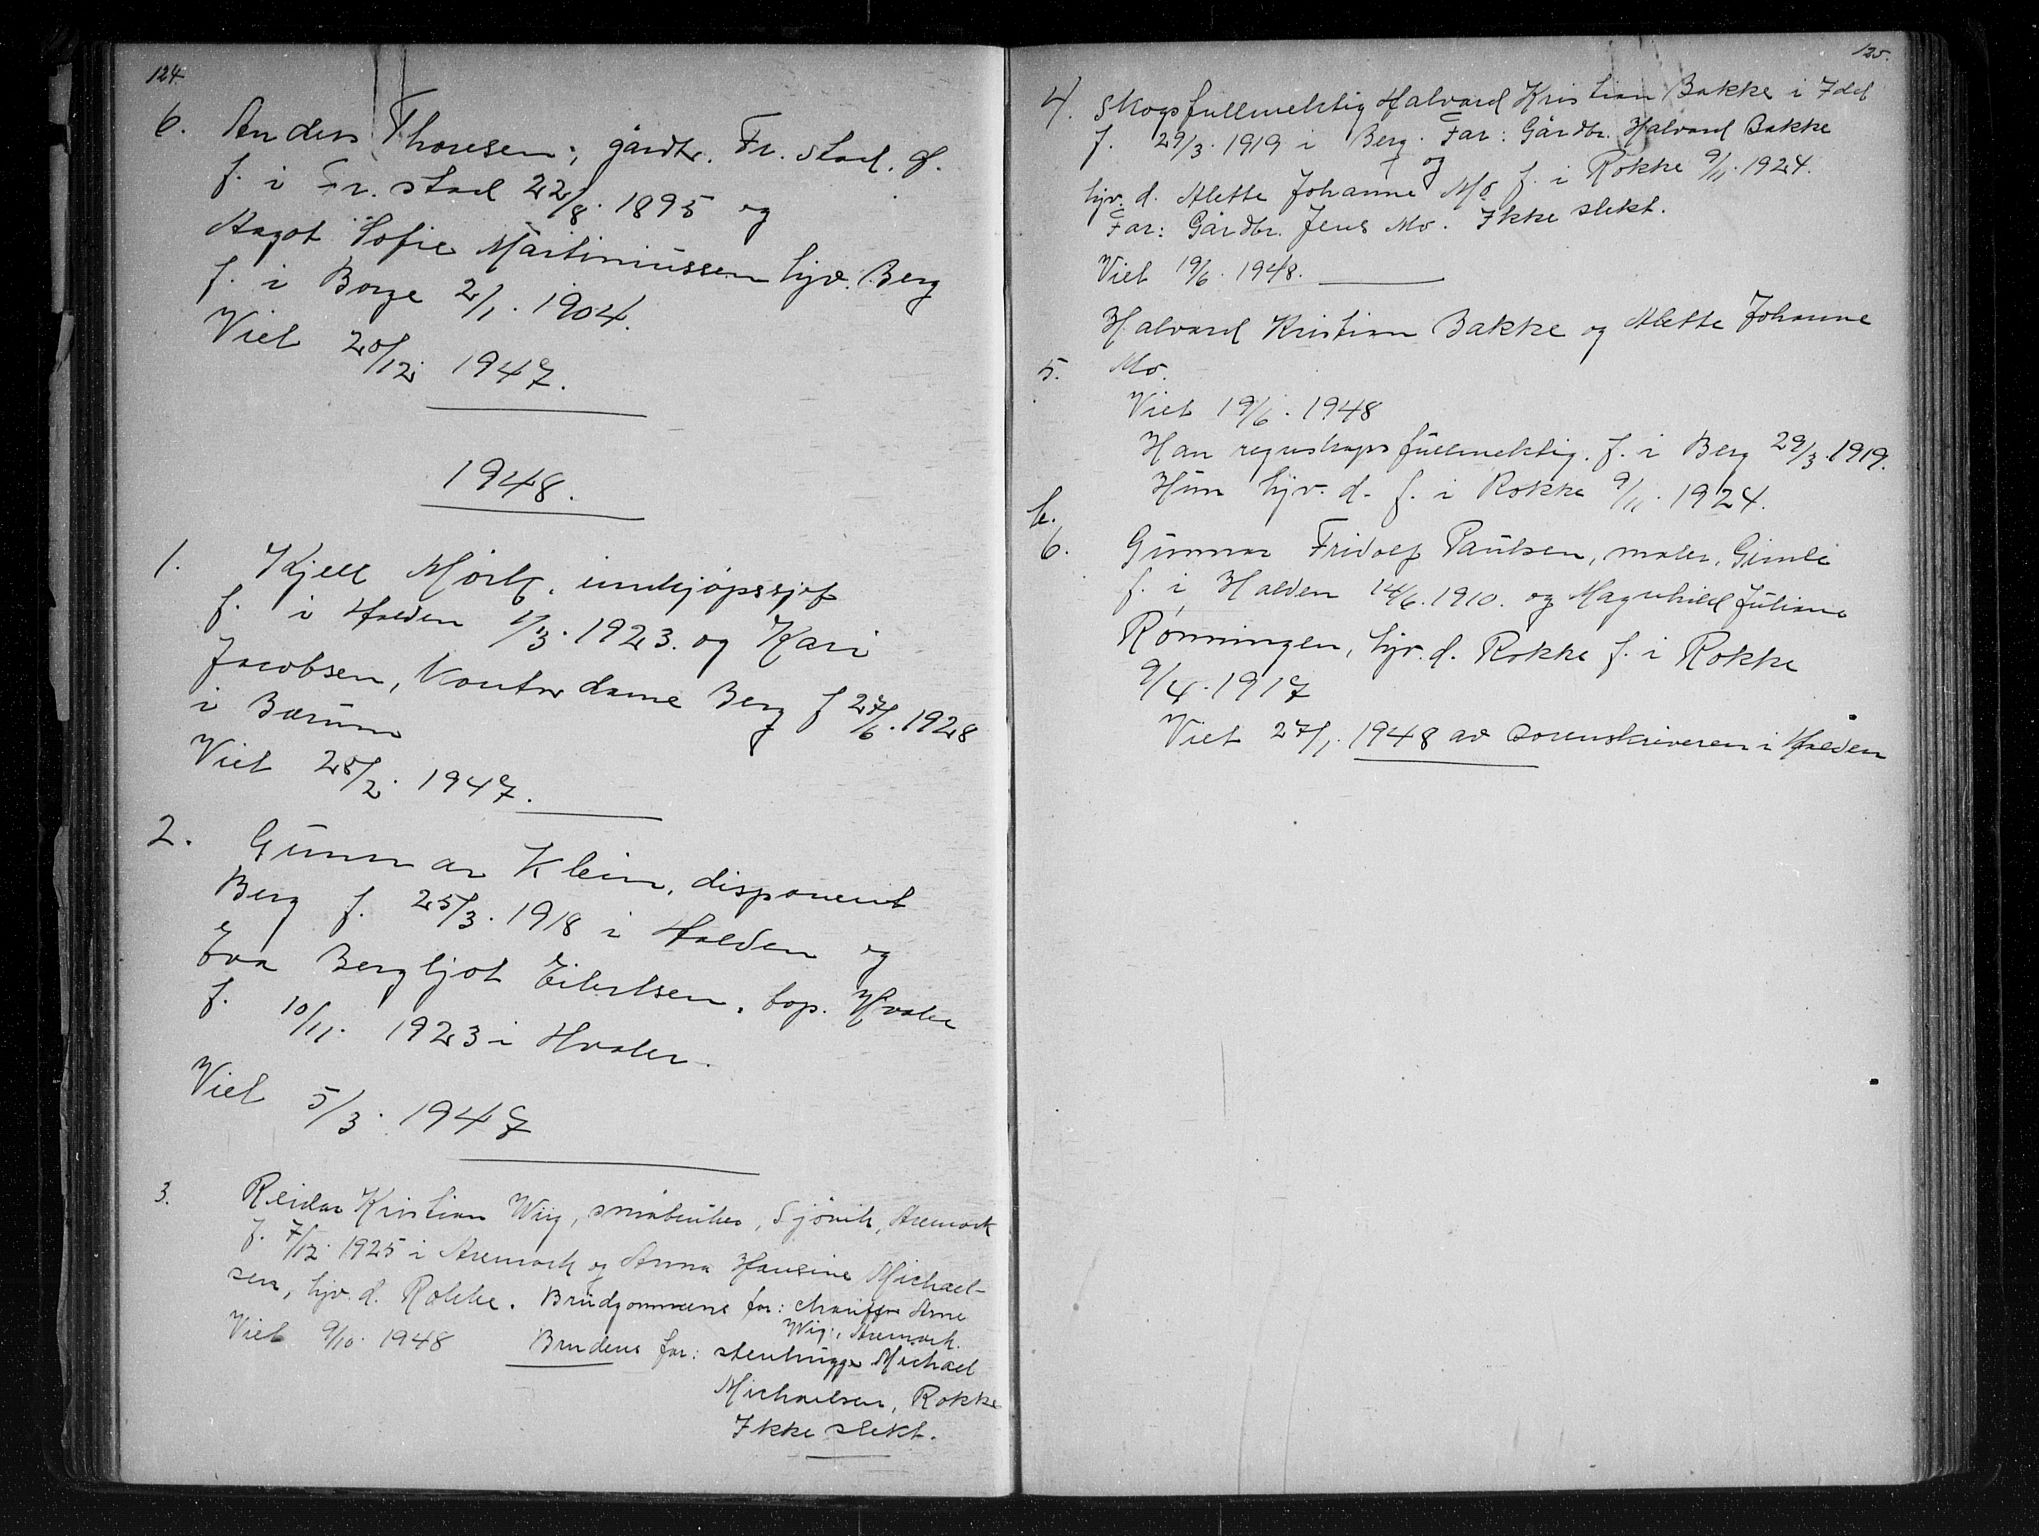 124.
6. Anders Thoresen, gårdbr. Fr.stad. O.
f. i Fr.stad 22/8. 1895 og
Aagot Sofie Martiniussen hjv. Berg
f. i Borge 2/1. 1904.
Viet 20/12. 1947.
1948.
1. Kjell Mørk, innkjøpssjef
f. i Halden 1/3. 1923. og Kari
Jacobsen, Kontordame Berg f 27/6. 1928
i Bærum
Viet 28/2. 1947.
2. Gunnar Klein, disponent
Berg f. 25/3. 1918 i Halden og
Eva Bergljot Eilertsen, bop. Hvaler
f. 10/11. 1923 i Hvaler.
Viet 5/3. 1947
3. Reidar Kristian Wiig, småbruker, Sjøvik, Aremark
f. 7/12. 1925 i Aremark og Anna Hansine Michael-
sen, hjv. d. Rokke. Brudgommens far: chauffør Arne
Wiig, Aremark.
Viet 9/10. 1948 Brudens far: stenhugger Michael
Michaelsen, Rokke
Ikke slekt.
125.
4. Skogsfullmektig Halvard Kristian Bakke i Idd
f. 29/3. 1919 i Berg. Far: Gårdbr. Halvard Bakke
og
hjv. d. Alette Johanne Mo f. i Rokke 9/11. 1924.
Far: Gårdbr. Jens Mo. Ikke slekt.
Viet 19/6. 1948.
Halvard Kristian Bakke og Alette Johanne
5. Mo.
Viet 19/6. 1948
Han regnskapsfullmektig. f. i Berg 29/3. 1919.
Hun hjv. d. f. i Rokke 9/11. 1924.
b.
6. Gunnar Fridolf Paulsen, maler, Gimle
f. i Halden 14/6. 1910. og Magnhild Juliane
Rønningen, hjv. d. Rokke f. i Rokke
9/4. 1917
Viet 27/1. 1948 av sorenskriveren i Halden